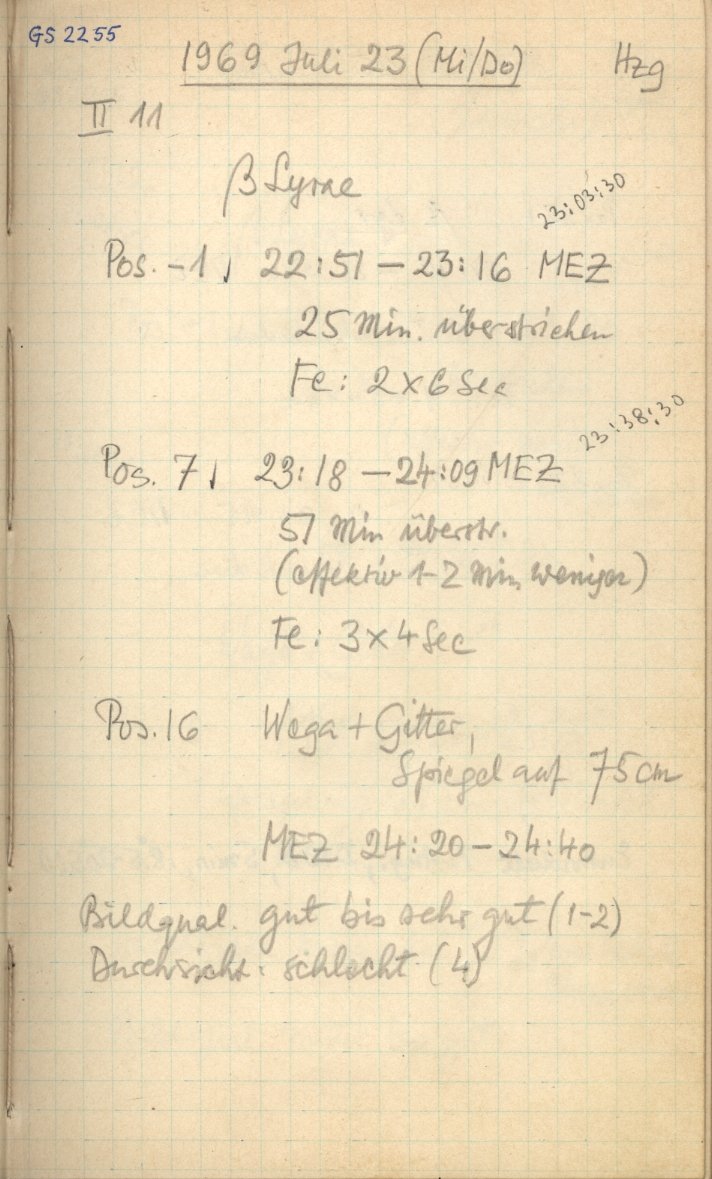 GS 2255
1969 Juli 23 (Mi/Do) Hzg
II 11
β Lyrae
23:03:30
Pos. -1, 22:51 – 23:16 MEZ
25 Min. überstrichen
Fe: 2×6 Sec
23:38:30
Pos. 7, 23:18 – 24:09 MEZ
51 Min überstr.
(effektiv 1-2 Min. weniger)
Fe: 3×4 Sec
Pos. 16 Wega + Gitter,
Spiegel auf 75 cm
MEZ 24:20 – 24:40
Bildqual. gut bis sehr gut (1-2)
Durchsicht: schlecht (4)